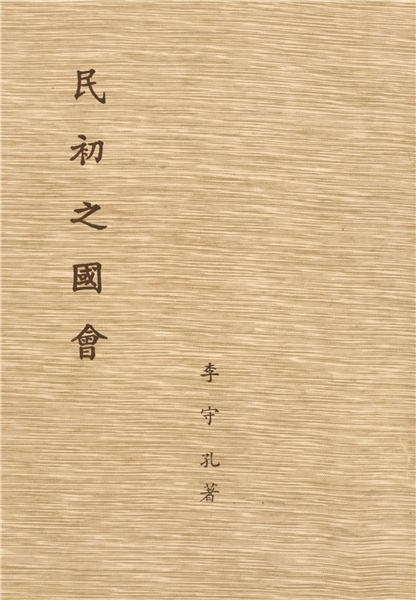 民初之國會
李守孔著